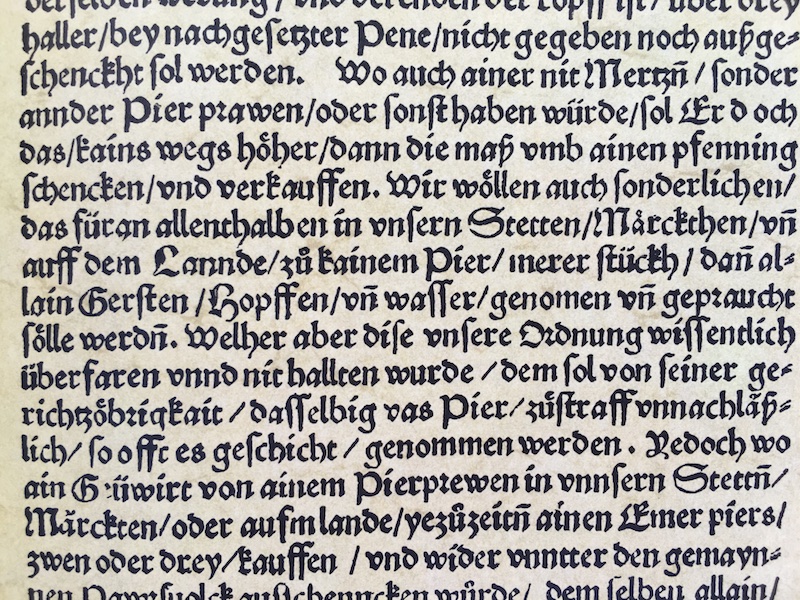 derselben werung / vnd derenden der kopff ist / über drey
haller / bey nachgesetzter Pene / nicht gegeben noch außge⸗
schenckht sol werden. Wo auch ainer nit Mertzñ / sonder
annder Pier prawen / oder sonst haben würde / sol Er doch
das / kains wegs höher / dann die maß vmb ainen pfenning
schencken / vnd verkauffen. Wir wöllen auch sonderlichen /
das füran allenthalben in vnsern Stetten / Märckthen / vñ
auff dem Lannde / zů kainem Pier / merer stückh / dañ al⸗
lain Gersten / Hopffen / vñ wasser / genomen vñ gepraucht
sölle werdñ. Welher aber dise vnsere Ordnung wissentlich
überfaren vnnd nit hallten wurde / dem sol von seiner ge⸗
richtzöbrigkait / dasselbig vas Pier / zůstraff vnnachläß⸗
lich / so offt es geschicht / genommen werden. Yedoch wo
ain Grüwirt von ainem Pierprewen in vnnsern Stettñ /
Märckten / oder aufm lande / yezůzeitñ ainen Emer piers /
zwen oder drey / kauffen / vnd wider vnntter den gemayn⸗
nen Pawrsuolck ausschenncken würde / dem selben allain /